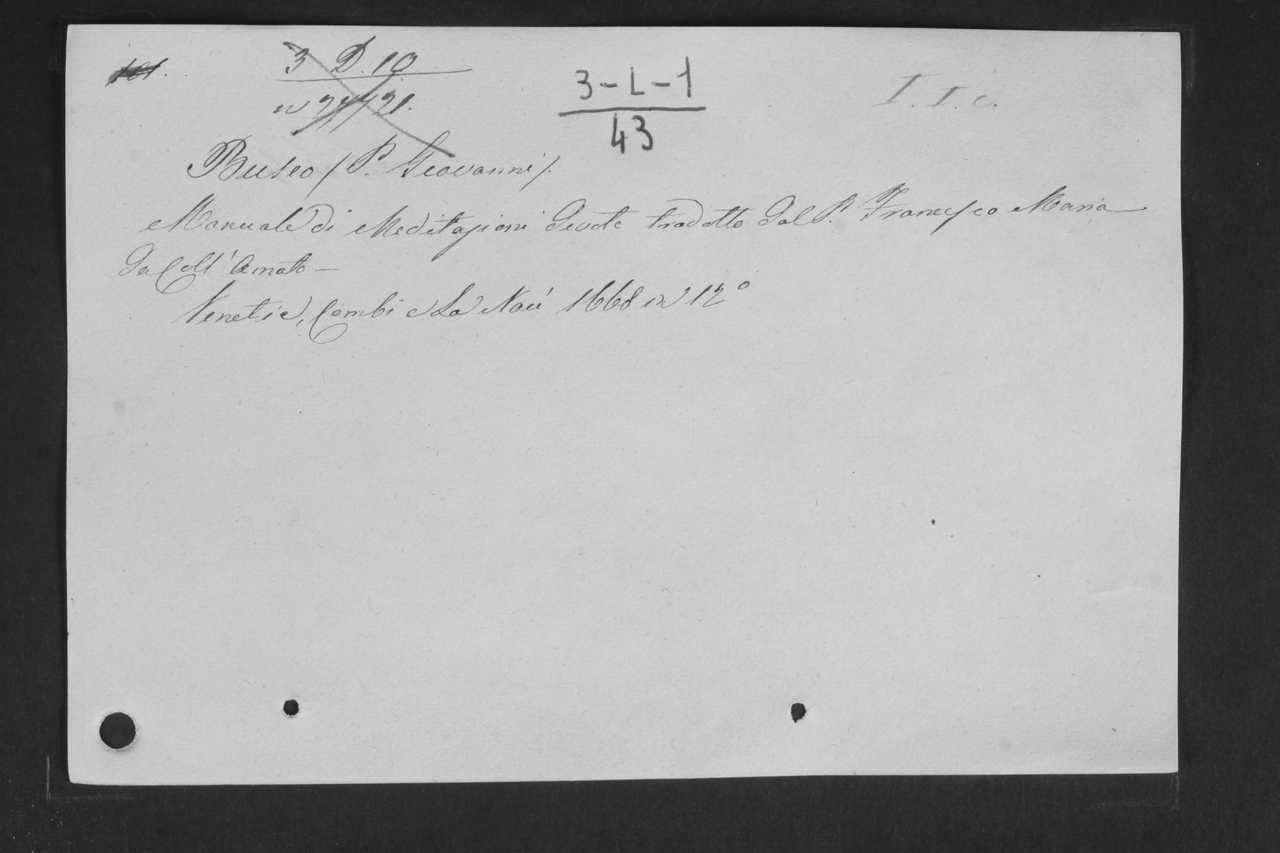 3 D. 10
3-L-1
43
I. I. c.
Buseo (P. Giovanni).
Manuale di Meditazioni devote tradotto dal P. Francesco Maria
da Coll' Amato —
Venetie, Combi e La Noù 1668 in 12°